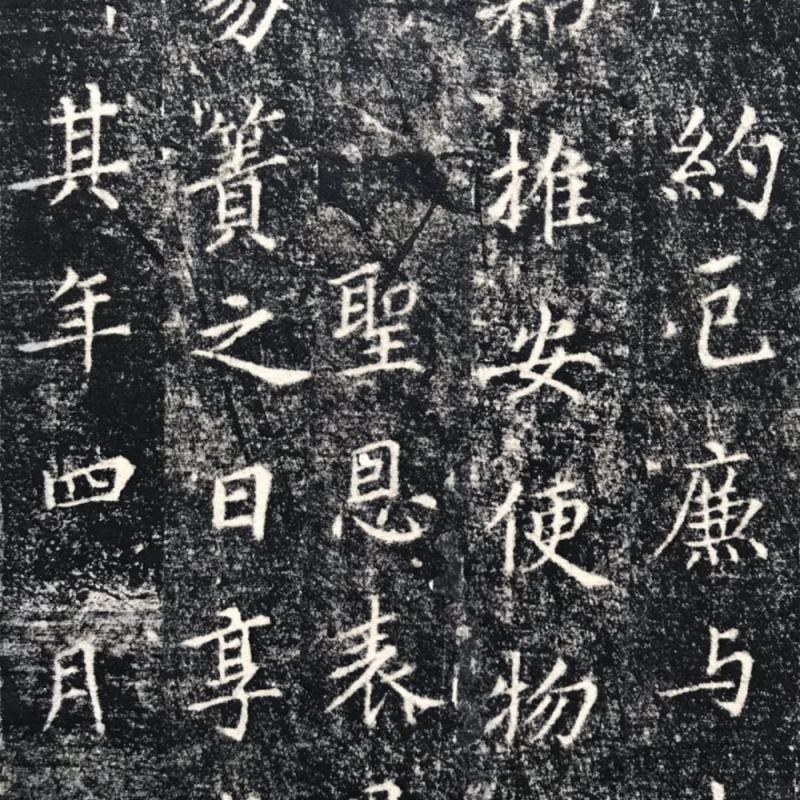 約己廉与
和推安便物
聖恩表
易簀之日享
其年四月